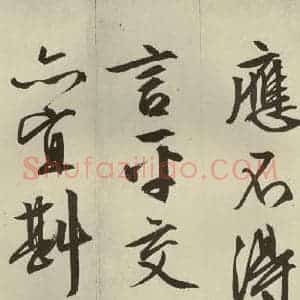 應不得
言平交
亦宜斟
Shufaziliao.COM